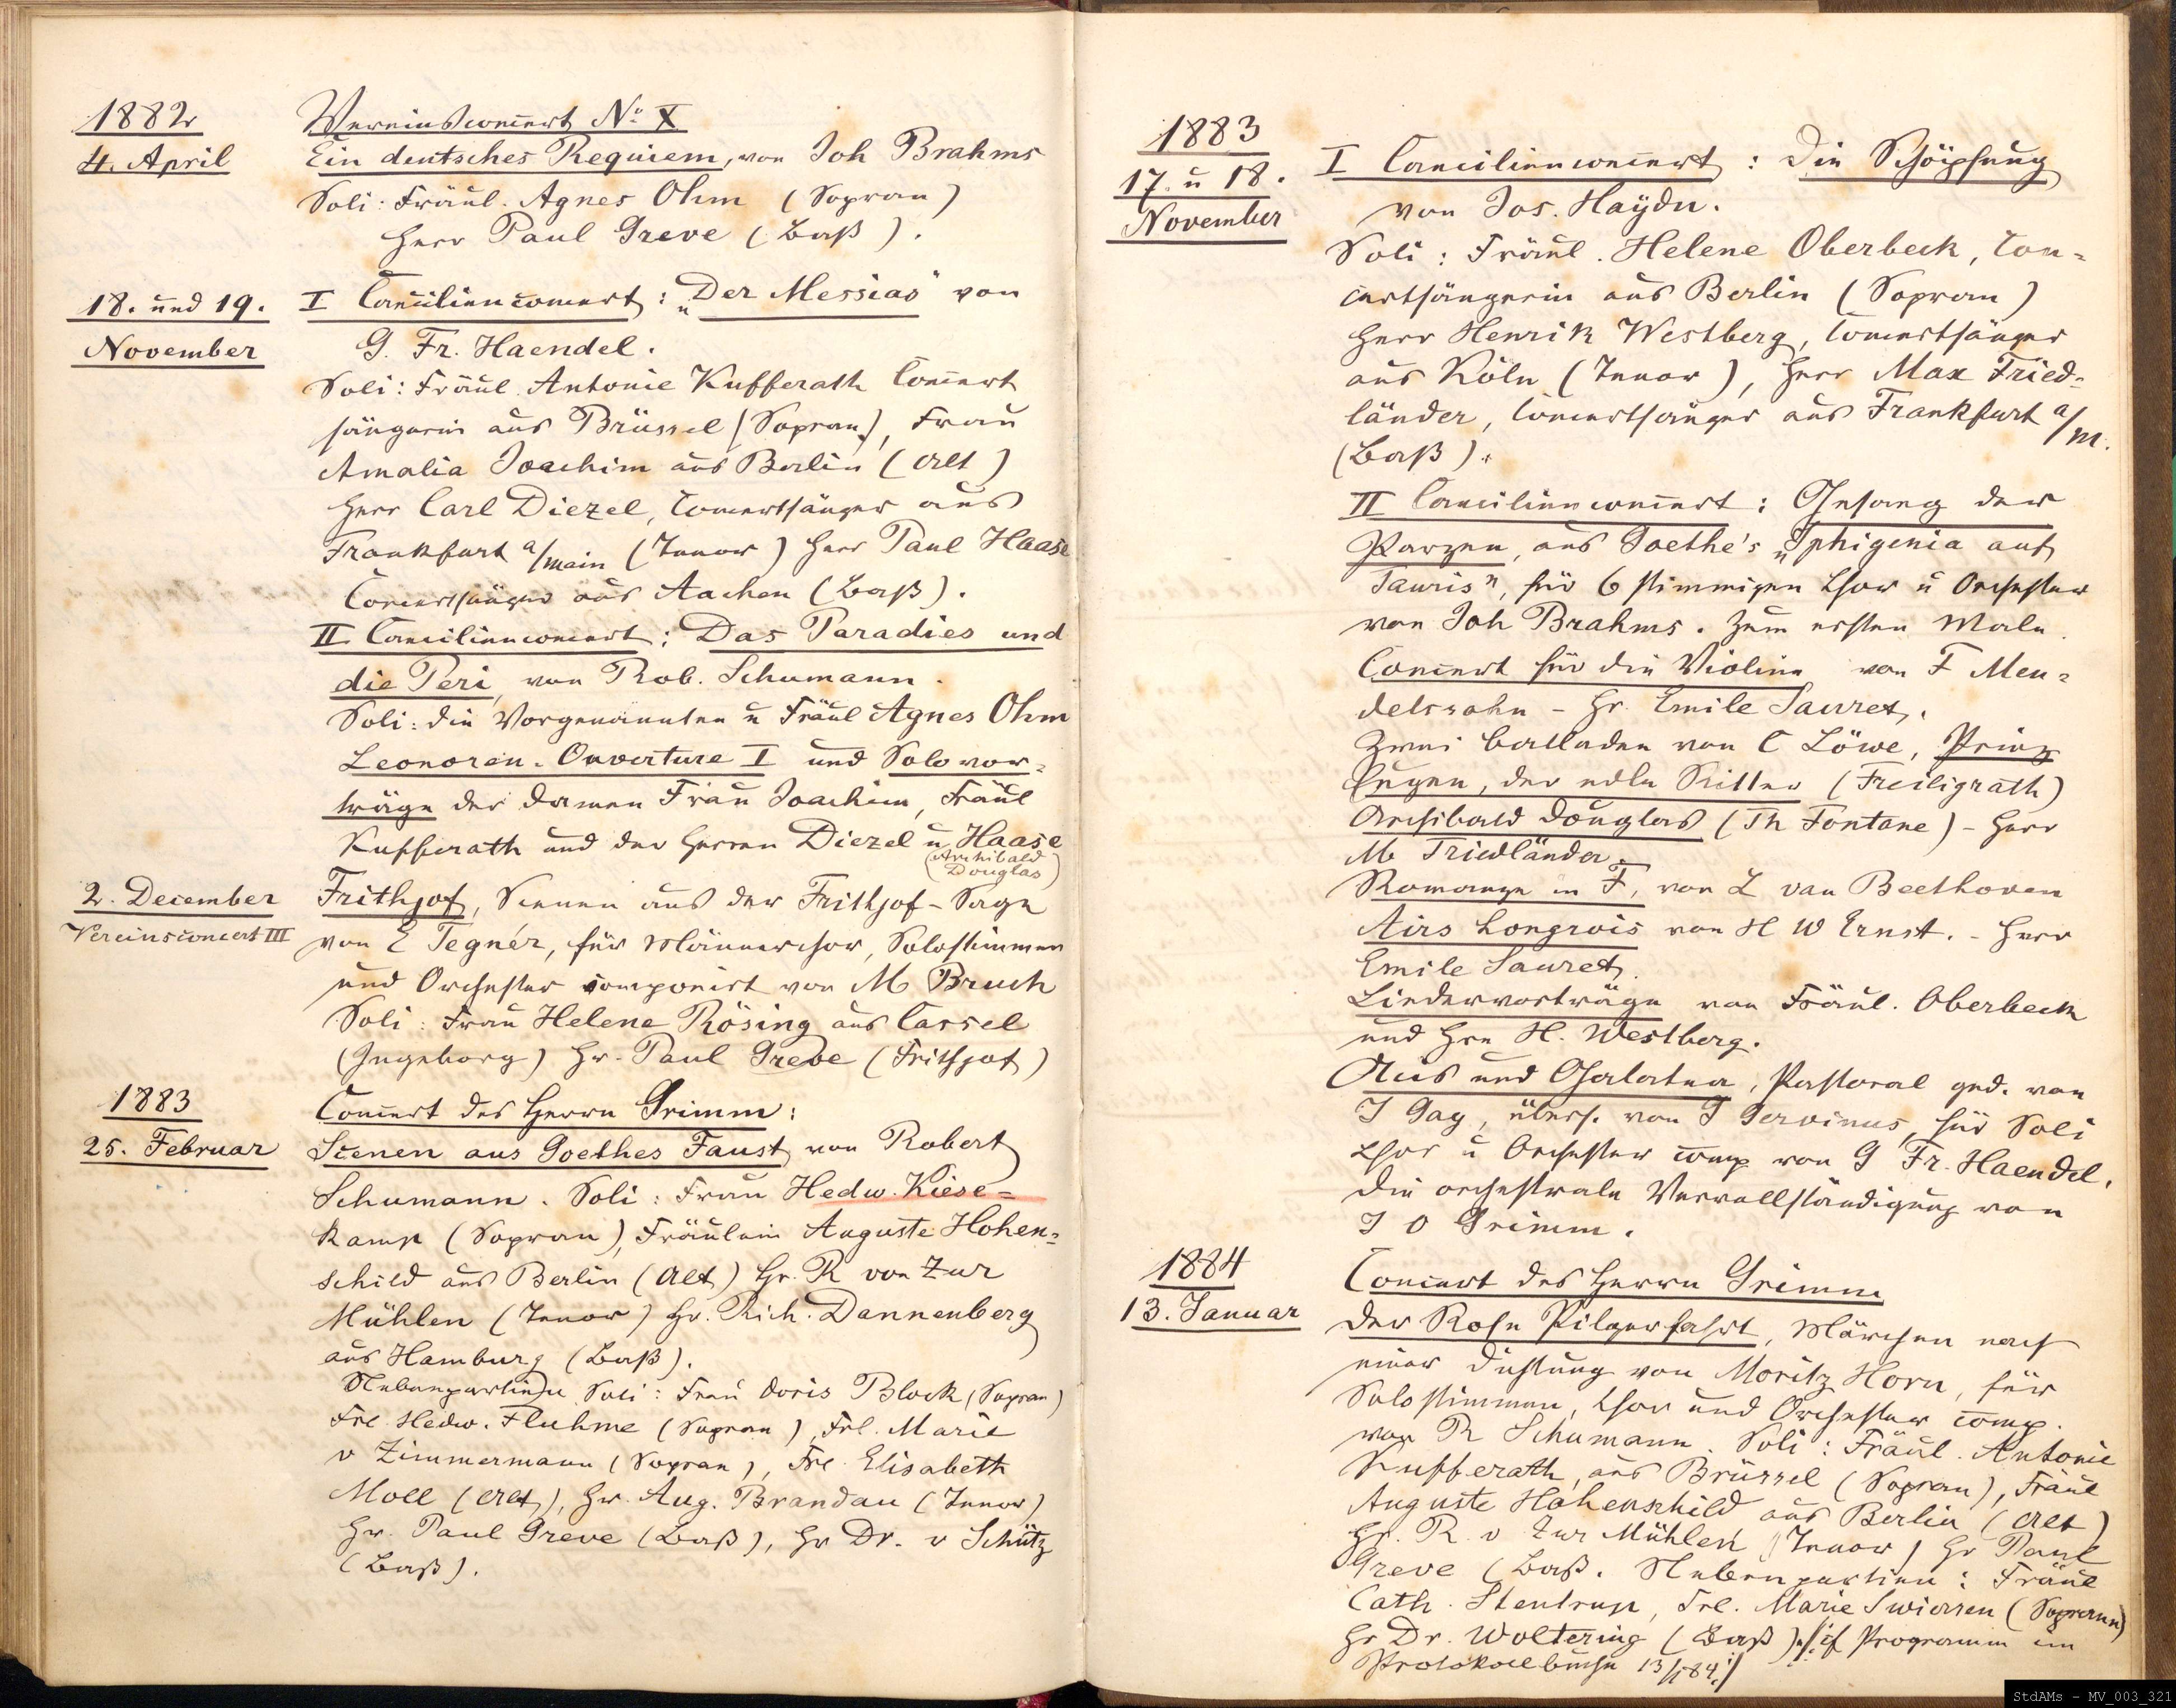 1882
4. April
Vereinsconcert No X
Ein deutsches Requiem, von Joh Brahms
Soli: Fräul. Agnes Ohm (Sopran)
Herr Paul Greve (Baß).
18. und 19.
November
I Caecilienconcert: „Der Messias" von
G. Fr. Haendel.
Soli: Fräul. Antonie Kufferath Concert
sängerin aus Brüssel (Sopran), Frau
Amalia Joachim aus Berlin (Alt)
Herr Carl Diezel, Concertsänger aus
Frankfurt a/Main (Tenor) Herr Paul Haase
Concertsänger aus Aachen (Baß).
II Caecilienconcert: Das Paradies und
die Peri, von Rob. Schumann.
Soli: die Vorgenannten u Fräul Agnes Ohm
Leonoren-Ouverture I und Solovor=
träge der Damen Frau Joachim, Fräul
Kufferath und der Herren Diezel u Haase
(Archibald
Douglas)
2. December
Vereinsconcert III
Frithjof, Scenen aus der Frithjof-Sage
von E Tegnér, für Männerchor, Solostimmen
und Orchester componirt von M Bruch
Soli: Frau Helene Rösing aus Cassel
(Ingeborg) Hr. Paul Greve (Frithjof)
1883
25. Februar
Concert des Herrn Grimm:
Scenen aus Goethes Faust von Robert
Schumann. Soli: Frau Hedw. Kiese=
kamp (Sopran), Fräulein Auguste Hohen=
schild aus Berlin (Alt) Hr. R von Zur
Mühlen (Tenor) Hr. Rich. Dannenberg
aus Hamburg (Baß).
Nebenpartieen Soli: Frau Doris Block (Sopran)
Frl. Hedw. Fluhme (Sopran), Frl. Marie
v Zimmermann (Sopran), Frl. Elisabeth
Moll (Alt), Hr. Aug. Brandau (Tenor)
Hr. Paul Greve (Baß), Hr Dr. v Schütz
(Baß).
1883
17. u 18.
November
I Caecilienconcert: Die Schöpfung
von Jos. Haydn.
Soli: Fräul. Helene Oberbeck, Con=
certsängerin aus Berlin (Sopran)
Herr Henrik Westberg, Concertsänger
aus Köln (Tenor), Herr Max Fried=
länder, Concertsänger aus Frankfurt a/M.
(Baß).
II Caecilienconcert: Gesang der
Parzen, aus Goethe's „Iphigenia auf
Tauris", für 6 stimmigen Chor u Orchester
von Joh Brahms. Zum ersten Male.
Concert für die Violine von F Men=
delssohn - Hr. Emile Sauret.
Zwei Balladen von C Löwe, Prinz
Eugen, der edle Ritter (Freiligrath)
Archibald Douglas (Th Fontane) - Herr
M Friedländer.
Romanze in F, von L van Beethoven
Airs hongrois von H W Ernst. - Herr
Emile Sauret.
Liedervorträge von Fräul. Oberbeck
und Hrn H. Westberg.
Acis und Galatea, Pastoral ged. von
J Gay, übers. von G Gervinus, für Soli
Chor u Orchester comp von G Fr. Haendel.
Die orchestrale Vervollständigung von
J O Grimm.
1884
13. Januar
Concert des Herrn Grimm
Der Rose Pilgerfahrt, Märchen nach
einer Dichtung von Moritz Horn, für
Solostimmen, Chor und Orchester comp.
von R Schumann. Soli: Fräul. Antonie
Kufferath, aus Brüssel (Sopran), Fräul
Auguste Hohenschild aus Berlin (Alt)
Hr. R. v Zur Mühlen (Tenor) Hr Paul
Greve (Baß. Nebenpartien: Fräul
Cath. Stentrup, Frl. Marie Swiersen (Sopran)
Hr Dr. Woltering (Baß) /: cf Programm im
Protokollbuche 13/1 84 :/
StdAMs - MV_003_321